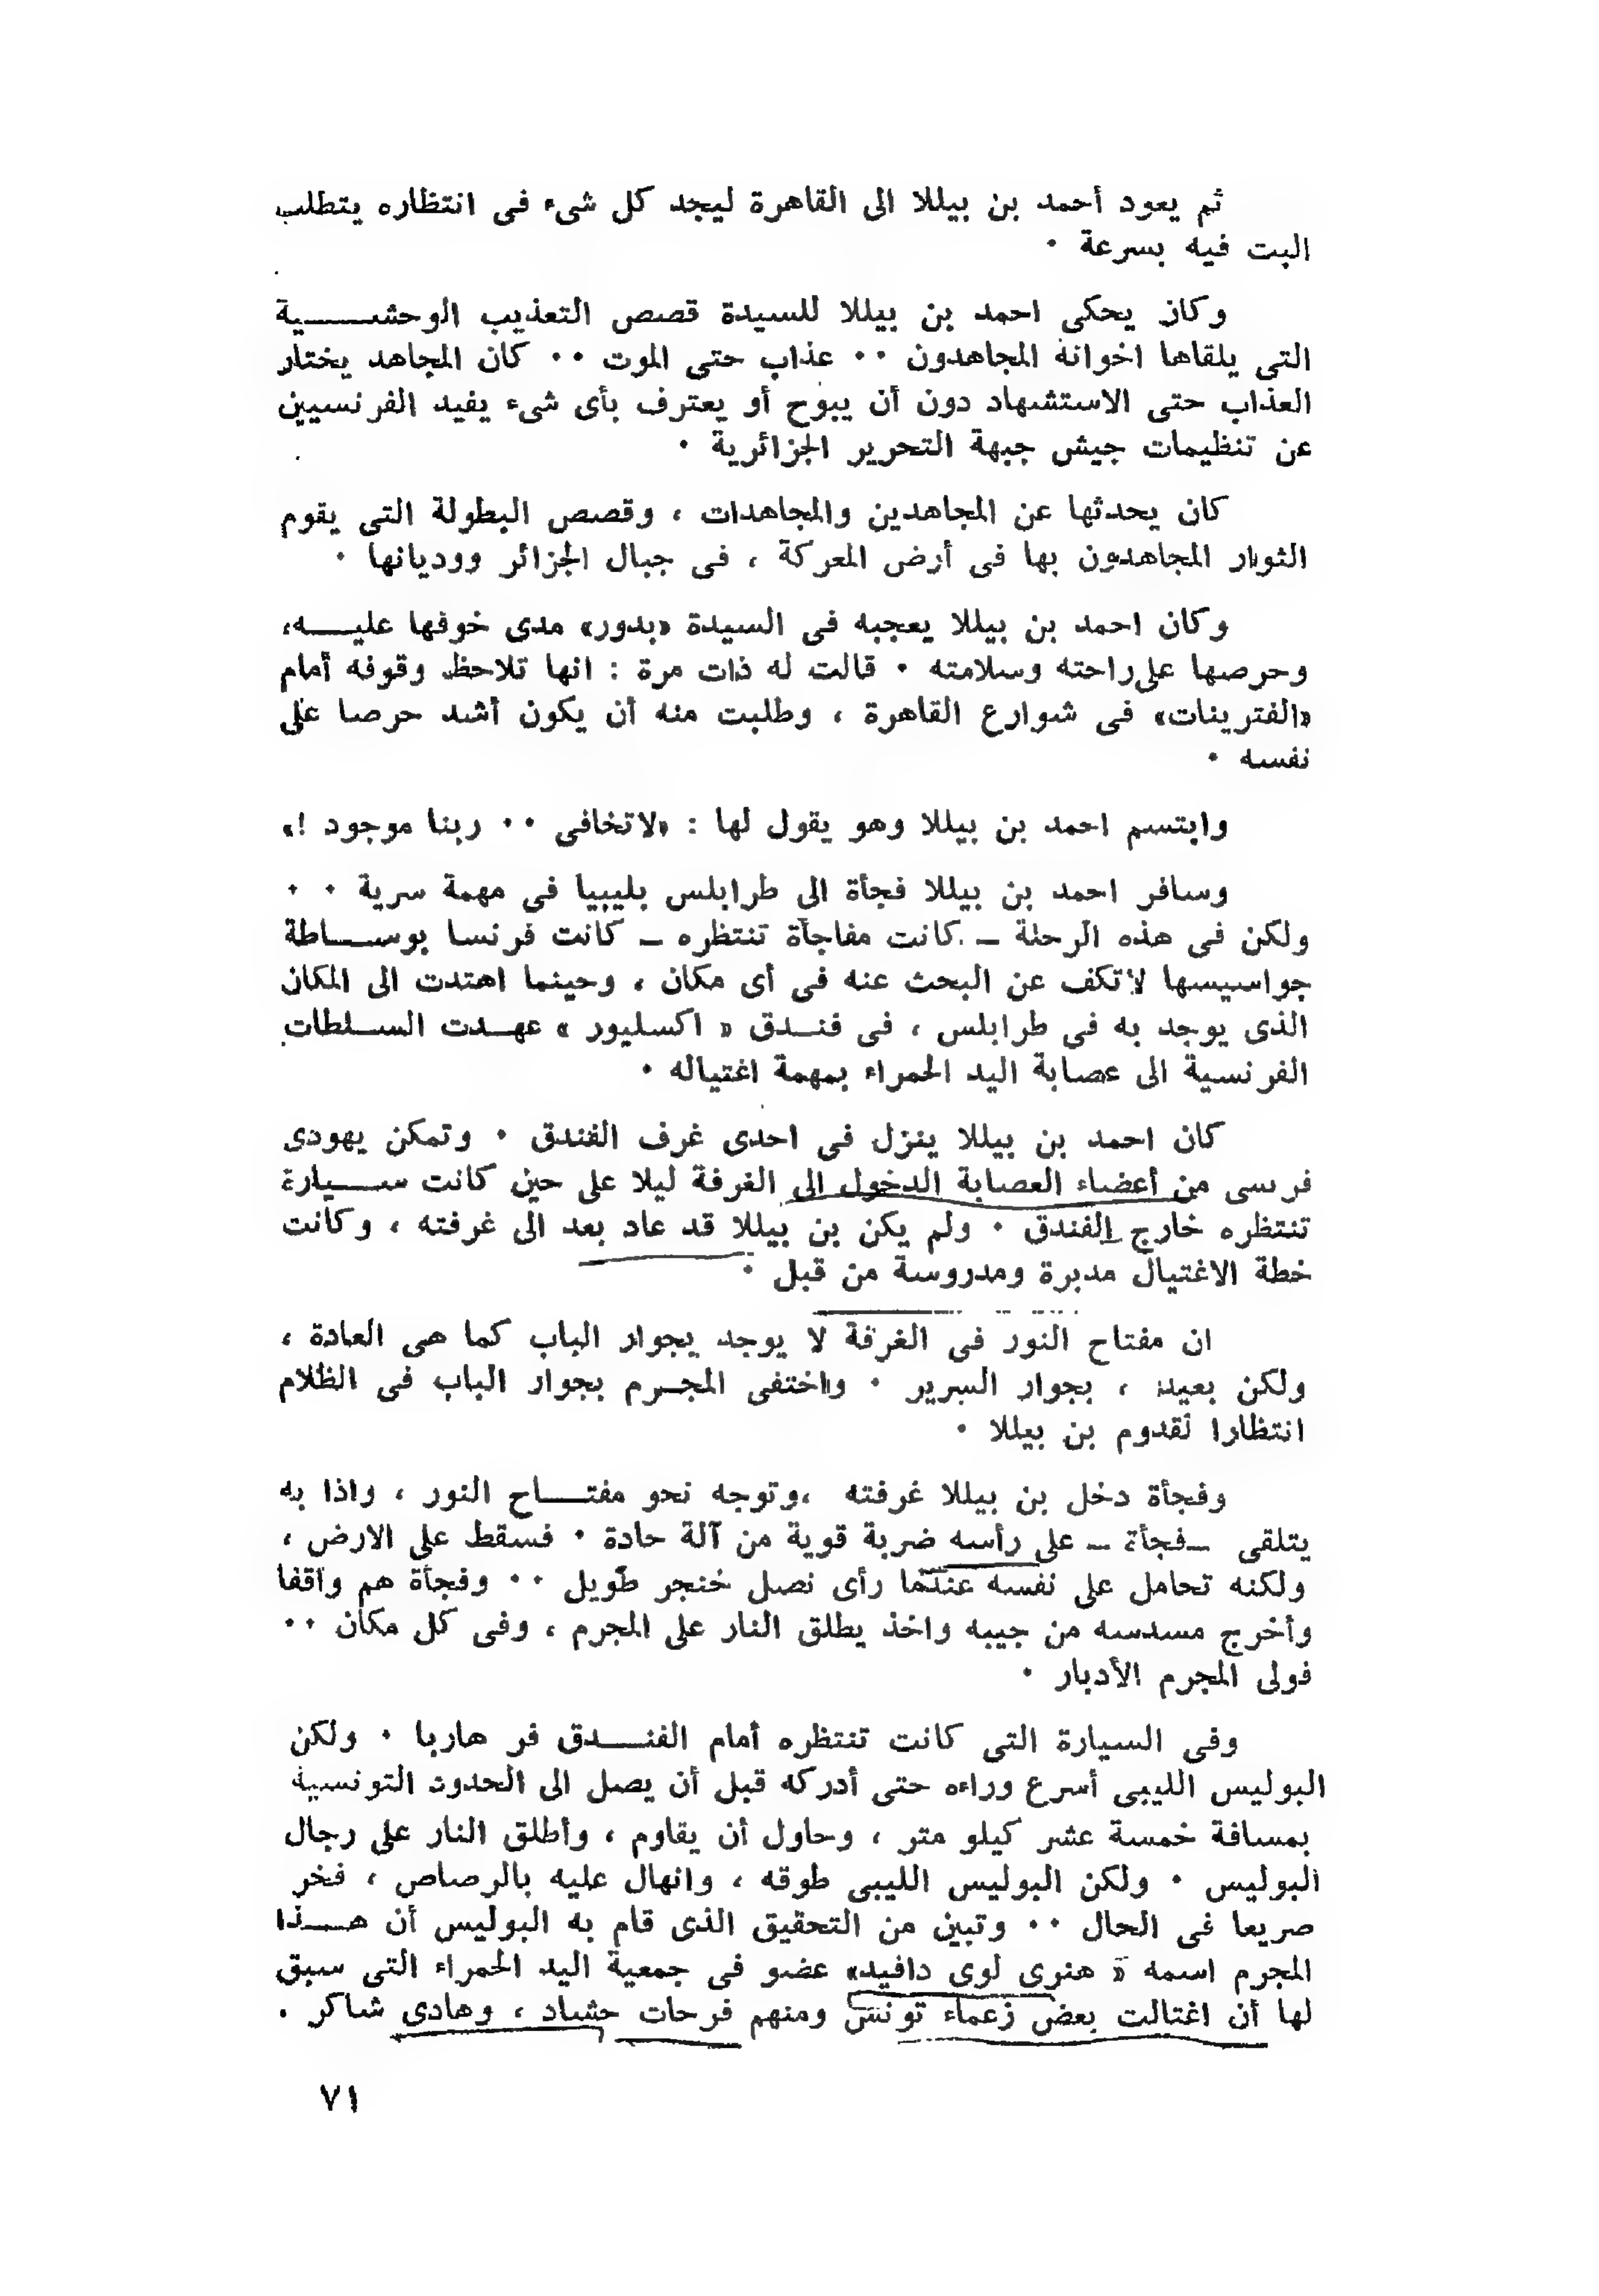 ثم يعود أحمد بن بيللا الى القاهرة ليجد كل شىء فى انتظاره يتطلب
البت فيه بسرعة ٠
وكان يحكى احمد بن بيللا للسيدة قصص التعذيب الوحشــــية
التى يلقاها اخوانه المجاهدون ٠٠ عذاب حتى الموت ٠٠ كان المجاهد يختار
العذاب حتى الاستشهاد دون أن يبوح أو يعترف بأى شىء يفيد الفرنسيين
عن تنظيمات جيش جبهة التحرير الجزائرية ٠
كان يحدثها عن المجاهدين والمجاهدات ، وقصص البطولة التى يقوم
الثوار المجاهدون بها فى أرض المعركة ، فى جبال الجزائر ووديانها ٠
وكان احمد بن بيللا يعجبه فى السيدة «بدور» مدى خوفها عليــــه،
وحرصها على راحته وسلامته ٠ قالت له ذات مرة : انها تلاحظ وقوفه أمام
«الفترينات» فى شوارع القاهرة ، وطلبت منه أن يكون أشد حرصا على
نفسه ٠
وابتسم احمد بن بيللا وهو يقول لها : «لاتخافى ٠٠ ربنا موجود !»
وسافر احمد بن بيللا فجأة الى طرابلس بليبيا فى مهمة سرية ٠ ٠
ولكن فى هذه الرحلة ـ كانت مفاجأة تنتظره ـ كانت فرنسا بوســـاطة
جواسيسها لاتكف عن البحث عنه فى أى مكان ، وحينما اهتدت الى المكان
الذى يوجد به فى طرابلس ، فى فنــدق « اكسليور » عهــدت الســلطات
الفرنسية الى عصابة اليد الحمراء بمهمة اغتياله ٠
كان احمد بن بيللا ينزل فى احدى غرف الفندق ٠ وتمكن يهودى
فرنسى من أعضاء العصابة الدخول الى الغرفة ليلا على حين كانت ســـيارة
تنتظره خارج الفندق ٠ ولم يكن بن بيللا قد عاد بعد الى غرفته ، وكانت
خطة الاغتيال مدبرة ومدروسة من قبل ٠
ان مفتاح النور فى الغرفة لا يوجد بجوار الباب كما هى العادة ،
ولكن بعيد ، بجوار السرير ٠ واختفى المجــرم بجوار الباب فى الظلام
انتظارا لقدوم بن بيللا ٠
وفجأة دخل بن بيللا غرفته ،وتوجه نحو مفتـــاح النور ، واذا به
يتلقى ـفجأة ـ على رأسه ضربة قوية من آلة حادة ٠ فسقط على الارض ،
ولكنه تحامل على نفسه عندما رأى نصل خنجر طويل ٠٠ وفجأة هم واقفا
وأخرج مسدسه من جيبه واخذ يطلق النار على المجرم ، وفى كل مكان ٠٠
فولى المجرم الأدبار ٠
وفى السيارة التى كانت تنتظره أمام الفنـــدق فر هاربا ٠ ولكن
البوليس الليبى أسرع وراءه حتى أدركه قبل أن يصل الى الحدود التونسية
بمسافة خمسة عشر كيلو متر ، وحاول أن يقاوم ، وأطلق النار على رجال
البوليس ٠ ولكن البوليس الليبى طوقه ، وانهال عليه بالرصاص ، فخر
صريعا فى الحال ٠٠ وتبين من التحقيق الذى قام به البوليس أن هـــذا
المجرم اسمه « هنرى لوى دافيد» عضو فى جمعية اليد الحمراء التى سبق
لها أن اغتالت بعض زعماء تونس ومنهم فرحات حشاد ، وهادى شاكر .
٧١